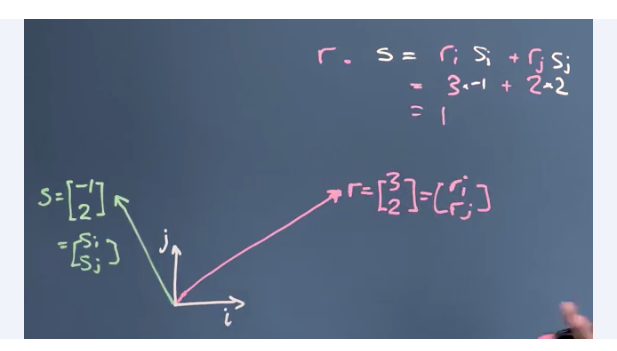 r. s = ri si + rj sj
= 3*-1 + 2*2
= 1
s=[-1 2]
=[si sj]
r=[3 2]=[ri rj]
j
i